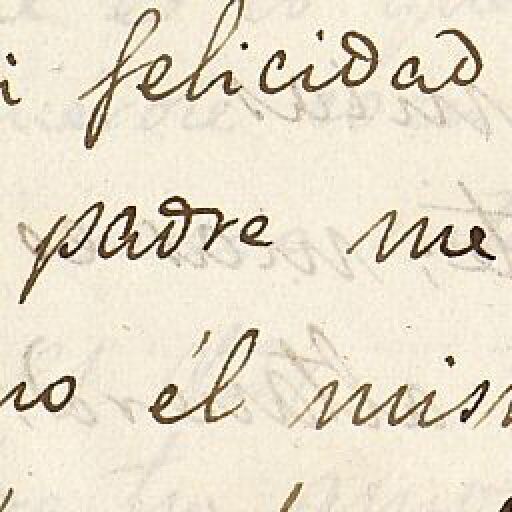 i felicidad
padre me
no él mism